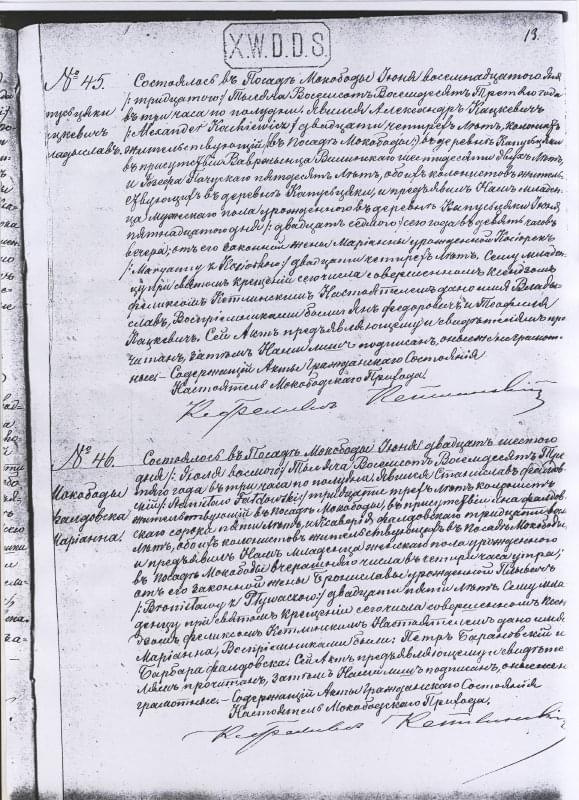 X.W.D.D.S.
13.
№ 45.
Кацкевич
Владислав.
Состоялось въ Посадѣ Мокободы Іюня восемнадцатого дня
/: тридцатого / тысяча восемьсотъ восемьдесятъ третьяго года
въ три часа по полудни. Явился Александръ Кацкевичъ
/: Alexander Kackiewicz / двадцати четырехъ лѣтъ, колонистъ
жительствующій въ
въ присутствіи шестидесяти двухъ лѣтъ,
и Іозефа пятдесятъ лѣтъ, обоихъ колонистовъ житель-
ствующихъ въ деревнѣ и предъявилъ Намъ младен-
ца мужескаго пола урожденного въ деревнѣ Іюня,
пятнадцатого дня / двадцать седмого / сего года въ девять часовъ
вечера; отъ его законной жены Маріанны урожденной
/: Maryanny z двадцати четырехъ лѣтъ. Сему младен-
цу при святомъ крещеніи сего числа совершенномъ Ксендзомъ
Феликсомъ Котлинскимъ Настоятелемъ дано имя Влади-
славъ, Воспріемниками были Янъ Федоровичъ и Теофилія
Кацкевичъ. Сей Актъ предъявляющему и свидѣтелямъ про-
читанъ, затѣмъ Нами лишь подписанъ, онѣ же неграмот-
ные. — Содержащій Акты Гражданскаго Состоянія
Настоятель Мокободскаго Прихода.
№ 46.
Мокободы
Фалдовска
Маріанна.
Состоялось въ Посадѣ Мокободы Іюня двадцать шестого
дня /: Іюля восмого / тысяча восемьсотъ восемьдесятъ тре-
тьяго года въ три часа по полудни. Явился Станиславъ Фалдов-
скій /: Stanisław Fałdowski / тридцати трехъ лѣтъ колонистъ
жительствующій въ посадѣ Мокободы, въ присутствіи Яна Фалдов-
скаго сорока пяти лѣтъ, и Ксаверія Фалдовскаго тридцати
лѣтъ, обоихъ колонистовъ жительствующихъ въ Посадѣ Мокободы,
и предъявилъ Намъ младенца женскаго пола урожденного
въ посадѣ Мокободы вчерашняго числа въ четыри часа утра;
отъ его законной жены Брониславы урожденной
/: Bronisławy z двадцати пяти лѣтъ. Сему мла-
денцу при святомъ крещеніи сего числа совершенномъ Ксен-
дзомъ Феликсомъ Котлинскимъ Настоятелемъ дано имя
Маріанна, Воспріемниками были: Петръ Барановскій и
Барбара Фалдовска. Сей Актъ предъявляющему и свидѣте-
лямъ прочитанъ, затѣмъ Нами лишь подписанъ, онѣ же не
грамотные. — Содержащій Акты Гражданскаго Состоянія
Настоятель Мокободскаго Прихода.